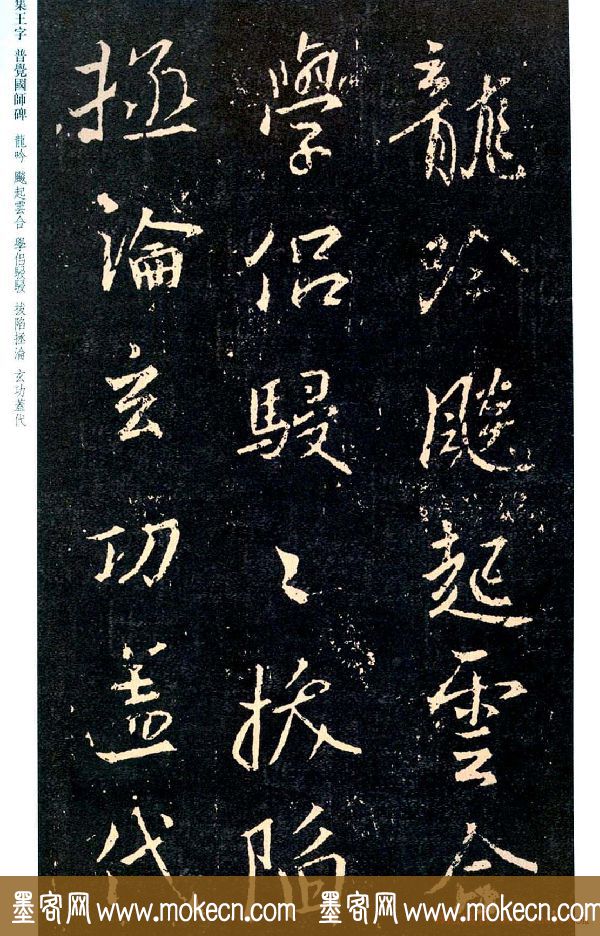 集王字 普覺國師碑 龍吟 飈起雲合 學侶駸駸 拔陷拯淪 玄功蓋代
龍吟飈起雲合
學侶駸〻拔陷
拯淪玄功蓋代
墨客网 www.mokecn.com 墨客网 www.mokecn.com